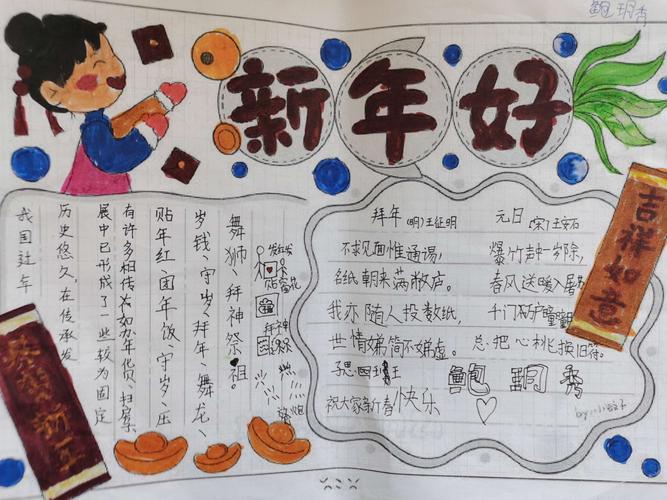 鲍玥秀
新年好
我国过年
历史悠久,在传承发
展中已形成了一些较为固定
有许多相传 如办年货、扫房
贴年红、团年饭、守岁、压
岁钱、守岁、拜年、舞龙、
舞狮、拜神祭祖。
发红包
贴窗花
拜神
恭贺新年
拜年 (明)王征明
不求见面惟通谒,
名纸朝来满敝庐。
我亦随人投数纸,
世情娣简不娣虚。
元日 [宋]王安石
爆竹声中一岁除,
春风送暖入屠苏
千门万户曈曈
总把心桃换旧符。
鲍玥秀
祝大家新春快乐
吉祥如意